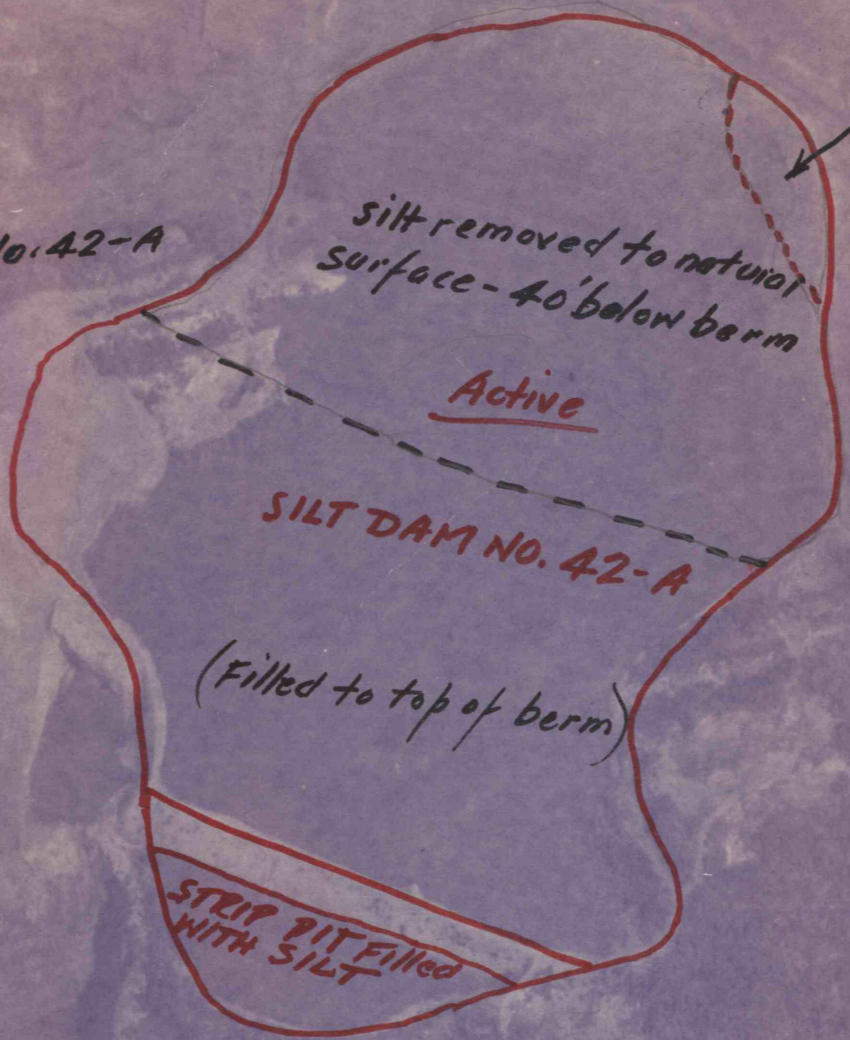 No. 42-A
silt removed to natural
surface - 40' below berm
Active
SILT DAM NO. 42-A
(Filled to top of berm)
STRIP PIT Filled
WITH SILT